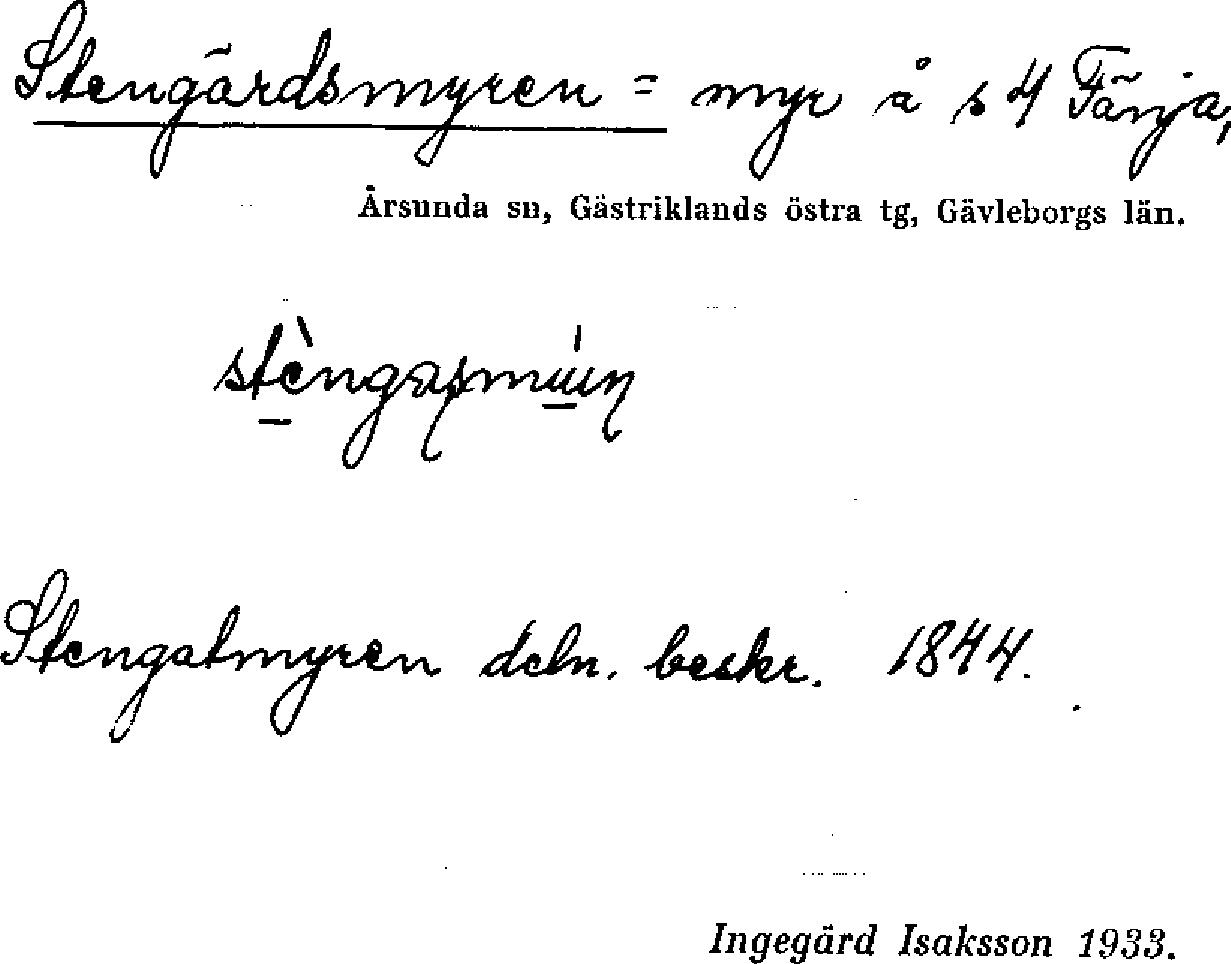 Stengärdsmyren = myr å s 4 Färja,
Årsunda sn, Gästriklands östra tg, Gävleborgs län.
Stengatmyren deln. beskr. 1844.
Ingegärd Isaksson 1933.